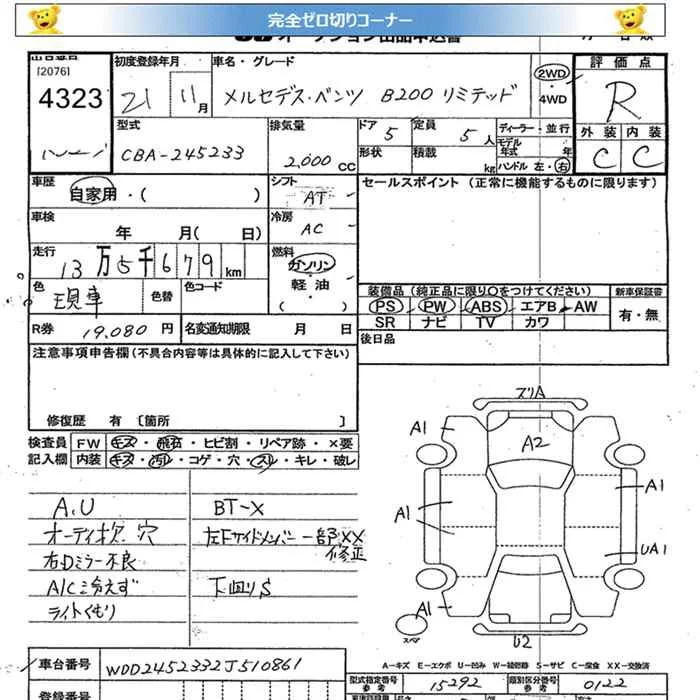 完全ゼロ切りコーナー
オークション出品申込書
出品番号
[2076]
4323
初度登録年月
21 11月
車名・グレード
メルセデス・ベンツ B200 リミテッド
2WD
・
4WD
評価点
R
外装 内装
C C
型式
CBA-245233
排気量
2,000 CC
ドア 5
定員 5人
形状
積載 kg
ディーラー・並行
モデル年式 年
ハンドル 左・右
車歴
自家用・( )
シフト
AT
セールスポイント (正常に機能するものに限ります)
車検
年 月( 日)
冷房
AC
走行
13万5千679km
燃料
ガソリン
・
軽・油
( )
色
現車
色替
色コード
装備品(純正品に限り○をつけてください)
新車保証書
PS PW ABS エアB AW
SR ナビ TV カワ
有・無
R券 19,080円
名変通知期限 月 日
後日品
注意事項申告欄(不具合内容等は具体的に記入して下さい)
修復歴 有 〔箇所 〕
検査員
記入欄
FW キズ・飛石・ヒビ割・リペア跡・×要
内装 キズ・汚レ・コゲ・穴・スレ・キレ・破レ
A,U
オーディオ次、穴
右Dミラー不良
A/C冷えず
ライトくもり
BT-X
左Fサイドメンバー一部XX
修正
下回りS
ズリA
A1
A2
A1
A1
UA1
A1
スペア
U2
A-キズ E-エクボ U-凹み W-補修跡 S-サビ C-腐食 XX-交換済
車台番号
WDD2452332J510861
登録番号
型式指定番号
参考
15292
類別区分番号
参考
0122